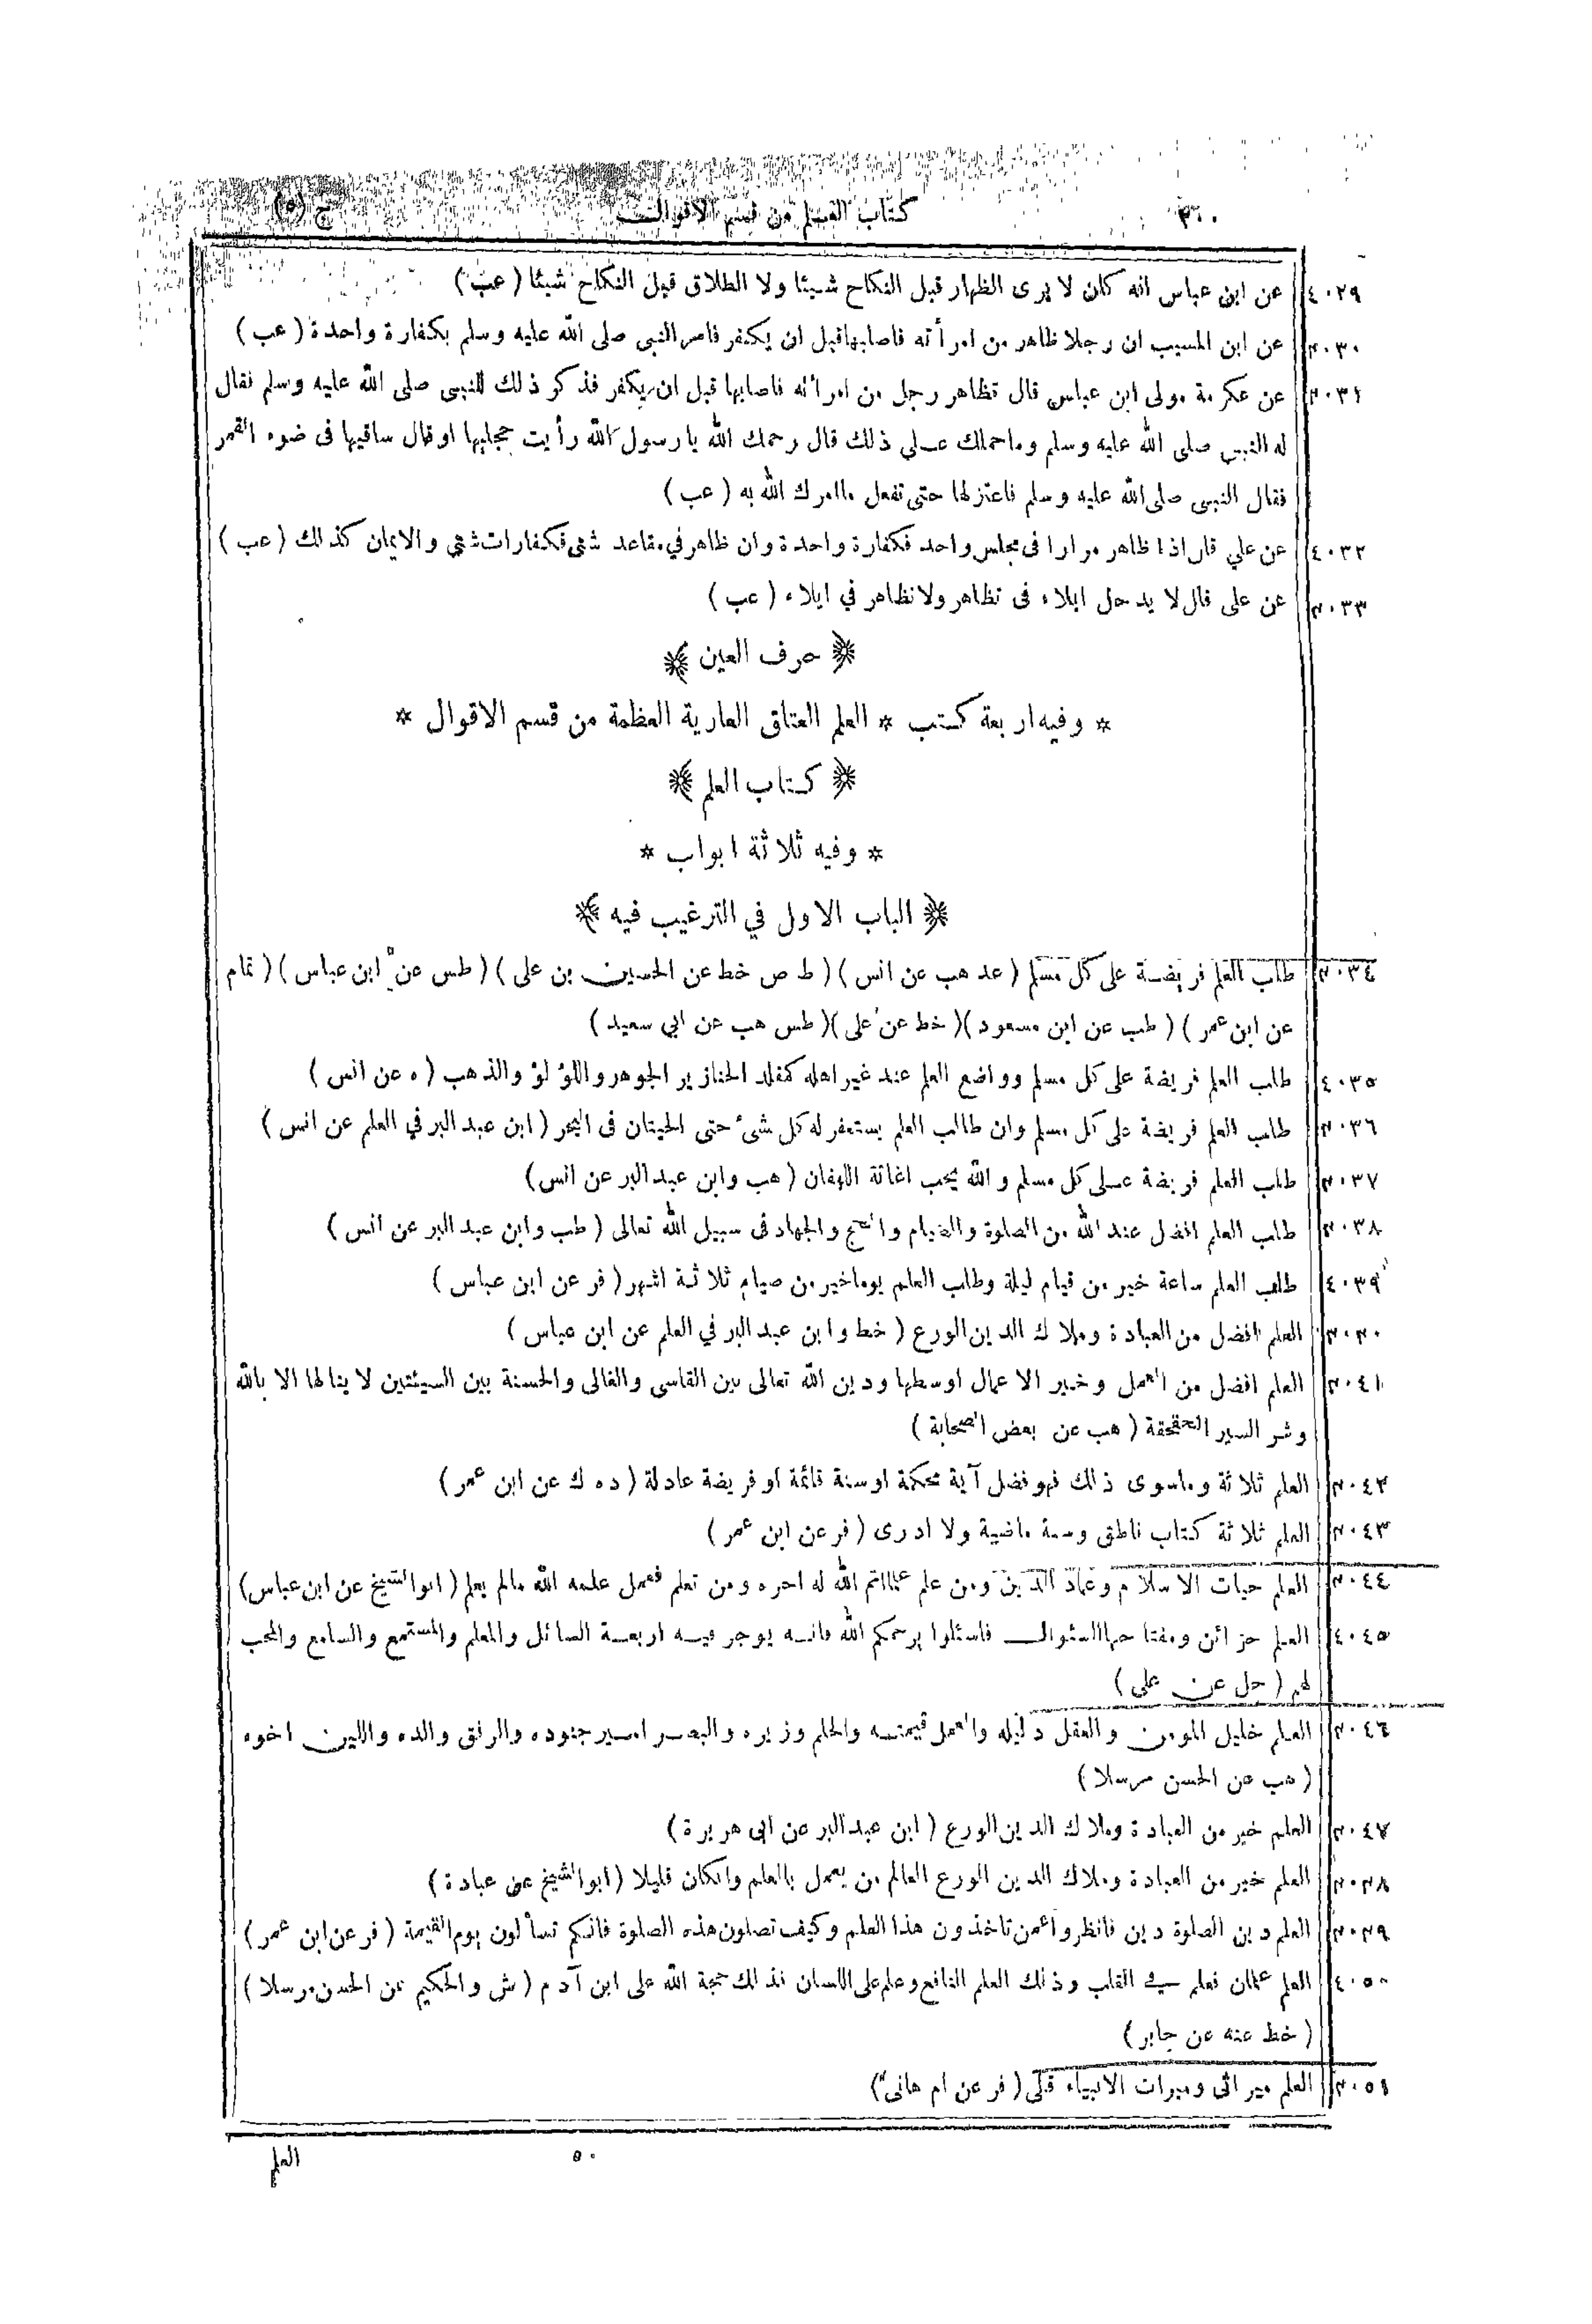 ٢٠٠ كتاب العلم من قسم الاقوال ج (٥)
٤٠٢٩ عن ابن عباس انه كان لا يرى الظهار قبل النكاح شيئا ولا الطلاق قبل النكاح شيئا (عب)
٤٠٣٠ عن ابن المسيب ان رجلا ظاهر من امرأته فاصابها قبل ان يكفر فامر النبى صلى الله عليه وسلم بكفارة واحدة (عب)
٤٠٣١ عن عكرمة مولى ابن عباس قال تظاهر رجل من امرأته فاصابها قبل ان يكفر فذكر ذلك للنبى صلى الله عليه وسلم فقال
له النبى صلى الله عليه وسلم وما حملك على ذلك قال رحمك الله يا رسول الله رأيت حجليها او قال ساقيها فى ضوء القمر
فقال النبى صلى الله عليه وسلم فاعتزلها حتى تفعل ما امرك الله به (عب)
٤٠٣٢ عن علي قال اذا ظاهر مرارا فى مجلس واحد فكفارة واحدة وان ظاهر في مقاعد شتى فكفارات شتى والايمان كذلك (عب)
٤٠٣٣ عن على قال لا يدخل ايلاء فى تظاهر ولا تظاهر في ايلاء (عب)
﴿ حرف العين ﴾
* وفيه اربعة كتب * العلم العتاق العارية العظمة من قسم الاقوال *
﴿ كتاب العلم ﴾
* وفيه ثلاثة ابواب *
﴿ الباب الاول في الترغيب فيه ﴾
٤٠٣٤ طلب العلم فريضة على كل مسلم (عد هب عن انس) (ط ص خط عن الحسين بن على) (طس عن ابن عباس) (تمام
عن ابن عمر) (طب عن ابن مسعود) (خط عن على) (طس هب عن ابي سعيد)
٤٠٣٥ طلب العلم فريضة على كل مسلم وواضع العلم عند غير اهله كمقلد الخنازير الجوهر واللؤلؤ والذهب (ه عن انس)
٤٠٣٦ طلب العلم فريضة على كل مسلم وان طالب العلم يستغفر له كل شئ حتى الحيتان فى البحر (ابن عبد البر في العلم عن انس)
٤٠٣٧ طلب العلم فريضة على كل مسلم والله يحب اغاثة اللهفان (هب وابن عبد البر عن انس)
٤٠٣٨ طلب العلم افضل عند الله من الصلوة والصيام والحج والجهاد فى سبيل الله تعالى (طب وابن عبد البر عن انس)
٤٠٣٩ طلب العلم ساعة خير من قيام ليلة وطلب العلم يوما خير من صيام ثلاثة اشهر (فر عن ابن عباس)
٤٠٤٠ العلم افضل من العبادة وملاك الدين الورع (خط وابن عبد البر في العلم عن ابن عباس)
٤٠٤١ العلم افضل من العمل وخير الاعمال اوسطها ودين الله تعالى بين القاسى والغالى والحسنة بين السيئتين لا ينالها الا بالله
وشر السير الحقحقة (هب عن بعض الصحابة)
٤٠٤٢ العلم ثلاثة وماسوى ذلك فهو فضل آية محكمة او سنة قائمة او فريضة عادلة (د ه ك عن ابن عمر)
٤٠٤٣ العلم ثلاثة كتاب ناطق وسنة ماضية ولا ادرى (فر عن ابن عمر)
٤٠٤٤ العلم حيات الاسلام وعماد الدين ومن علم علما اتم الله له اجره ومن تعلم فعمل علمه الله مالم يعلم (ابو الشيخ عن ابن عباس)
٤٠٤٥ العلم خزائن ومفتاحها السئوال فاسئلوا يرحمكم الله فانه يوجر فيه اربعة السائل والمعلم والمستمع والسامع والمحب
لهم (حل عن على)
٤٠٤٦ العلم خليل المومن والعقل دليله والعمل قيمته والحلم وزيره والبصر امير جنوده والرفق والده واللين اخوه
(هب عن الحسن مرسلا)
٤٠٤٧ العلم خير من العبادة وملاك الدين الورع (ابن عبد البر عن ابى هريرة)
٤٠٤٨ العلم خير من العبادة وملاك الدين الورع العالم من يعمل بالعلم وانكان قليلا (ابو الشيخ عن عبادة)
٤٠٤٩ العلم دين الصلوة دين فانظروا عمن تاخذون هذا العلم وكيف تصلون هذه الصلوة فانكم تسألون يوم القيمة (فر عن ابن عمر)
٤٠٥٠ العلم علمان فعلم في القلب وذلك العلم النافع وعلم على اللسان فذلك حجة الله على ابن آدم (ش والحكيم عن الحسن مرسلا)
(خط عنه عن جابر)
٤٠٥١ العلم ميراثى وميراث الانبياء قبلى (فر عن ام هانى)
٥٠ العلم